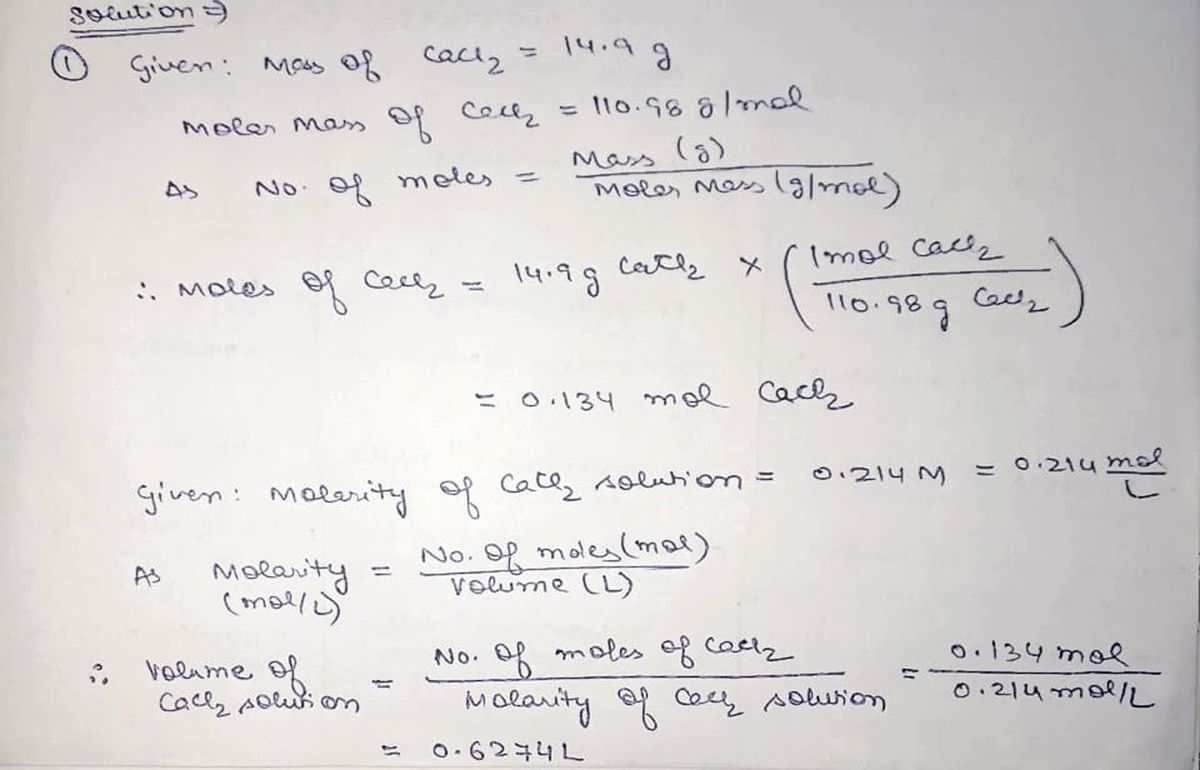 Solution ⇒
① Given: Mass of CaCl2 = 14.9 g
Molar Mass of CaCl2 = 110.98 g/mol
As No. of moles = Mass (g) / Molar Mass (g/mol)
∴ Moles of CaCl2 = 14.9 g CaCl2 × (1 mol CaCl2 / 110.98 g CaCl2)
= 0.134 mol CaCl2
Given: Molarity of CaCl2 solution = 0.214 M = 0.214 mol/L
As Molarity (mol/L) = No. of moles (mol) / Volume (L)
∴ Volume of CaCl2 solution = No. of moles of CaCl2 / Molarity of CaCl2 solution = 0.134 mol / 0.214 mol/L
= 0.6274 L